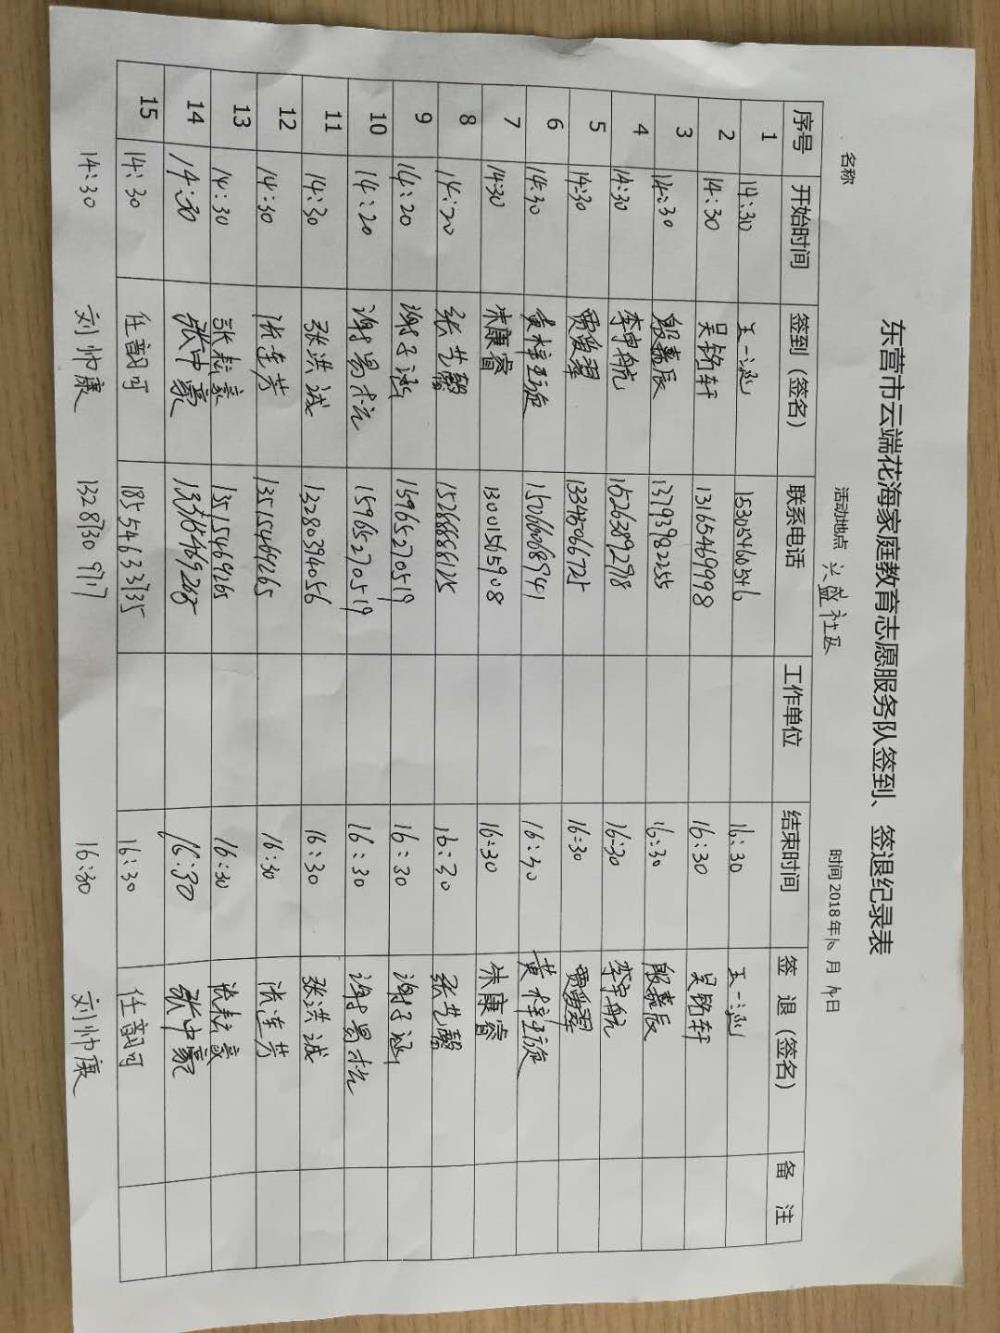 东营市云端花海家庭教育志愿服务队签到、签退纪录表
名称 活动地点 兴盛社区 时间 2018年 月 日
序号 开始时间 签到（签名） 联系电话 工作单位 结束时间 签 退（签名） 备 注
1 14:30 王一涵 15305460546 16:30 王一涵
2 14:30 吴铭轩 13165469998 16:30 吴铭轩
3 14:30 殷嘉辰 13793982255 16:30 殷嘉辰
4 14:30 李宇航 15263892798 16:30 李宇航
5 14:30 13345066725 16:30
6 14:30 黄梓珏旋 15066068941 16:30 黄梓珏旋
7 14:30 朱康睿 13001565908 16:30 朱康睿
8 14:20 张艺馨 15266686125 16:30 张艺馨
9 14:20 谢子涵 15965270519 16:30 谢子涵
10 14:20 谢易 15965270519 16:30 谢易
11 14:30 张洪诚 13280394056 16:30 张洪诚
12 14:30 洪连芳 13515469265 16:30 洪连芳
13 14:30 13515469265 16:30
14 14:30 张中豪 16:30 张中豪
15 14:30 任韶可 18554633735 16:30 任韶可
14:30 刘帅康 13287309717 16:30 刘帅康